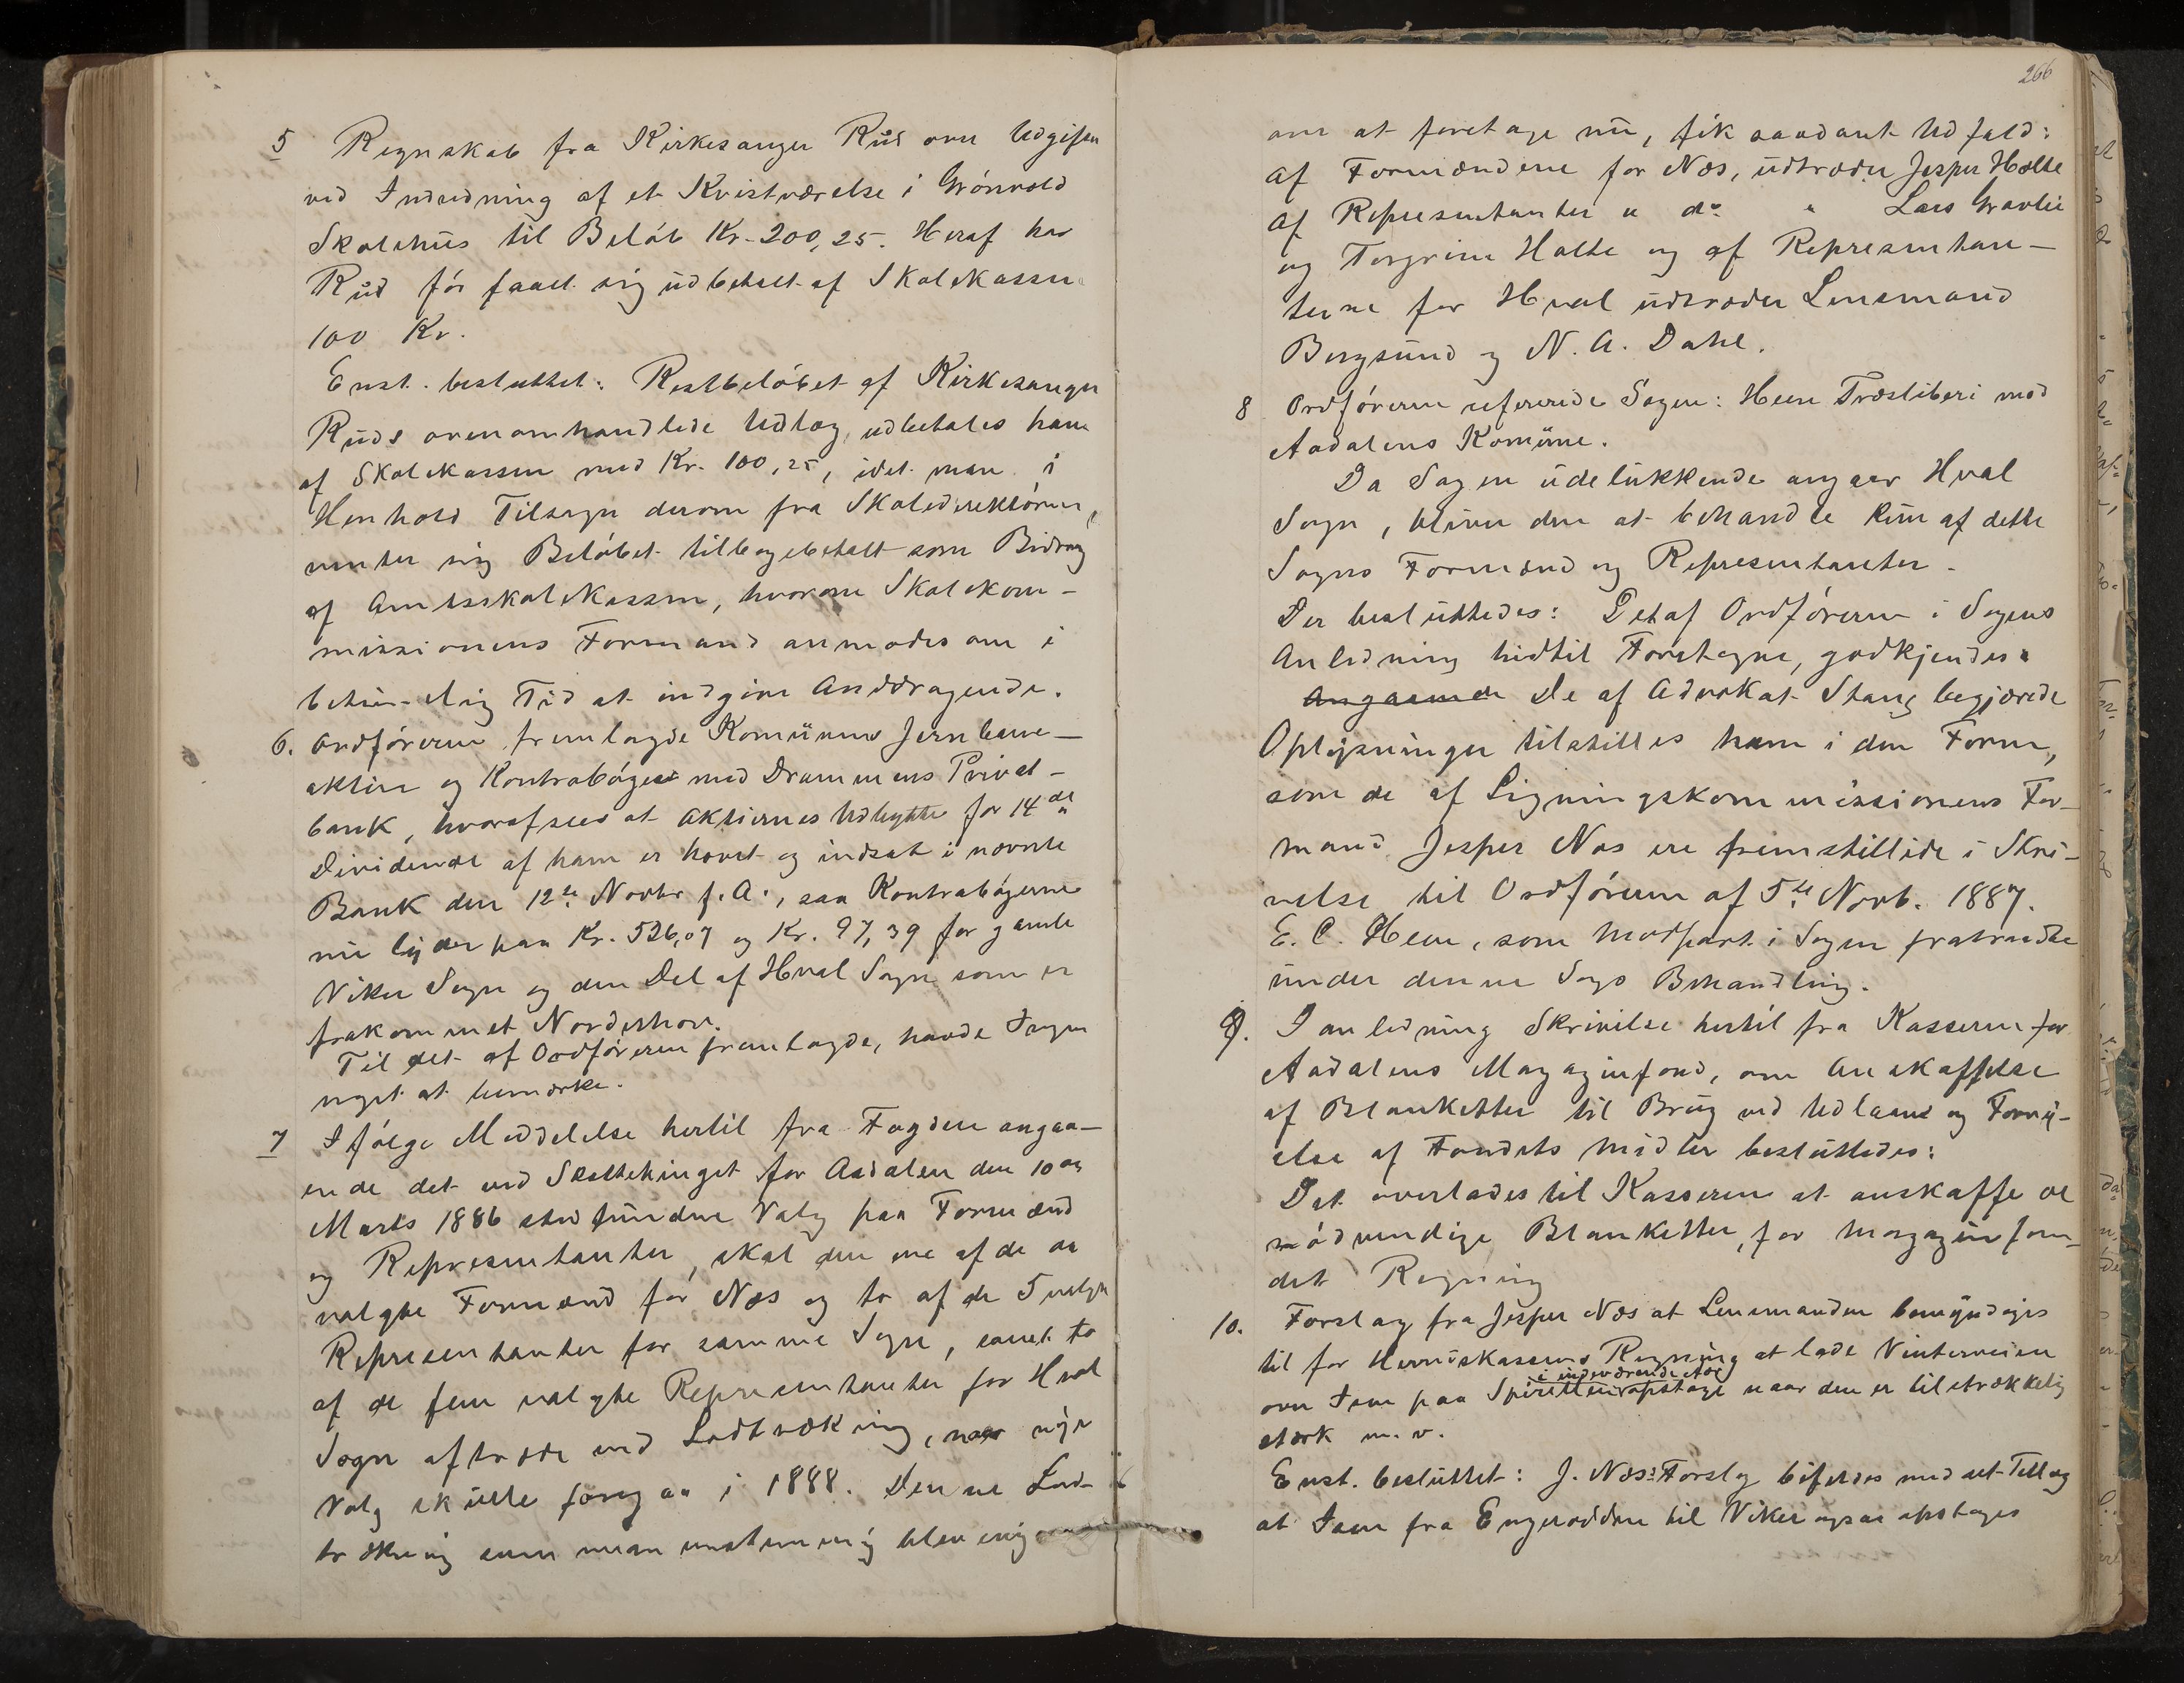 5 Regnskab fra Kirkesanger Rud over Udgifter
ved Indredning af et Kvistværelse i Grönvold
Skolehus til Beløb Kr. 200,25. Heraf har
Rud før faaet sig udbetalt af Skolekassen
100 Kr.
Enst. besluttet: Restbeløbet af Kirkesanger
Ruds ovenomhandlede Udlæg, udbetales ham
af Skolekassen med Kr. 100,25, idet man i
Henhold Tilsagn derom fra Skoledirektøren,
venter sig Beløbet tilbagebetalt som Bidrag
af Amtsskolekassen, hvorom Skolekom-
missionens Formand anmodes om i
betimelig Tid at indgive Anddragende.
6. Ordføreren fremlagde Komunens Jernbane-
aktier og Kontrabøger med Drammens Privat-
bank, hvoraf sees at Aktiernes Udbytte for 14de
Dividende af ham er hævet og indsat i nævnte
Bank den 12te Novbr f. A., saa Kontrabøgerne
nu lyder paa Kr. 526,07 og Kr. 97,39 for gamle
Viker Sogn og den Del af Hval Sogn som er
frakommet Norderhov.
Til det af Ordføreren fremlagde, havde Ingen
noget at bemærke.
7 Ifølge Meddelelse hertil fra Fogden angaa-
ende det ved Skattetinget for Aadalen den 10de
Marts 1886 stedfundne Valg paa Formænd
og Representanter, skal den ene af de to
valgte Formænd for Næs og to af de 5 valgte
Representanter for samme Sogn, samt to
af de fem valgte Representanter for Hval
Sogn aftræde ved Lodtrækning, naar nye
Valg skulle foregaa i 1888. Denne Lod-
trækning som man enstemmig blev enig
266
om at foretage nu, fik saadant Udfald:
Af Formændene for Næs, udtræder Jesper Hælte
Af Representanter " do " Lars Gravlie
og Torgrim Halte og af Representan-
terne for Hval udtræder Lensmand
Bergsund og N. A. Dahl.
8 Ordføreren refererede Sagen: Heen Træsliberi mod
Aadalens Komune.
Da Sagen udelukkende angaar Hval
Sogn, bliver den at behandle kun af dette
Sogns Formænd og Representanter.
Der besluttedes: Det af Ordføreren i Sagens
Anledning hidtil Foretagne, godkjendes.
Angaaende De af Advokat Stang begjærede
Oplysninger tilstilles ham i den Form,
som de af Ligningskommissionens For-
mand Jesper Næs ere fremstillede i Skri-
velse til Ordføreren af 5te Novb. 1887.
E. C. Heen, som Modpart i Sagen fratraadte
under denne Sags Behandling.
9. I anledning Skrivelse hertil fra Kassereren for
Aadalens Magazinfond, om Anskaffelse
af Blanketter til Brug ved Udlaan og Forny-
else af Fondets Midler besluttedes:
Det overlades til Kassereren at anskaffe de
nødvendige Blanketter, for Magazinfon-
det Regning
10. Forslag fra Jesper Næs at Lensmanden bemyndiges
til for Herredskassens Regning at lade Vinterveien
i indeværende Aar
over Isen paa Spirillen opstage naar den er tilstrækkelig
stærk m. v.
Enst. besluttet: J. Næs's Forslag bifaldes med et Tillæg
at Isen fra Engerodden til Viker ogsaa opstages